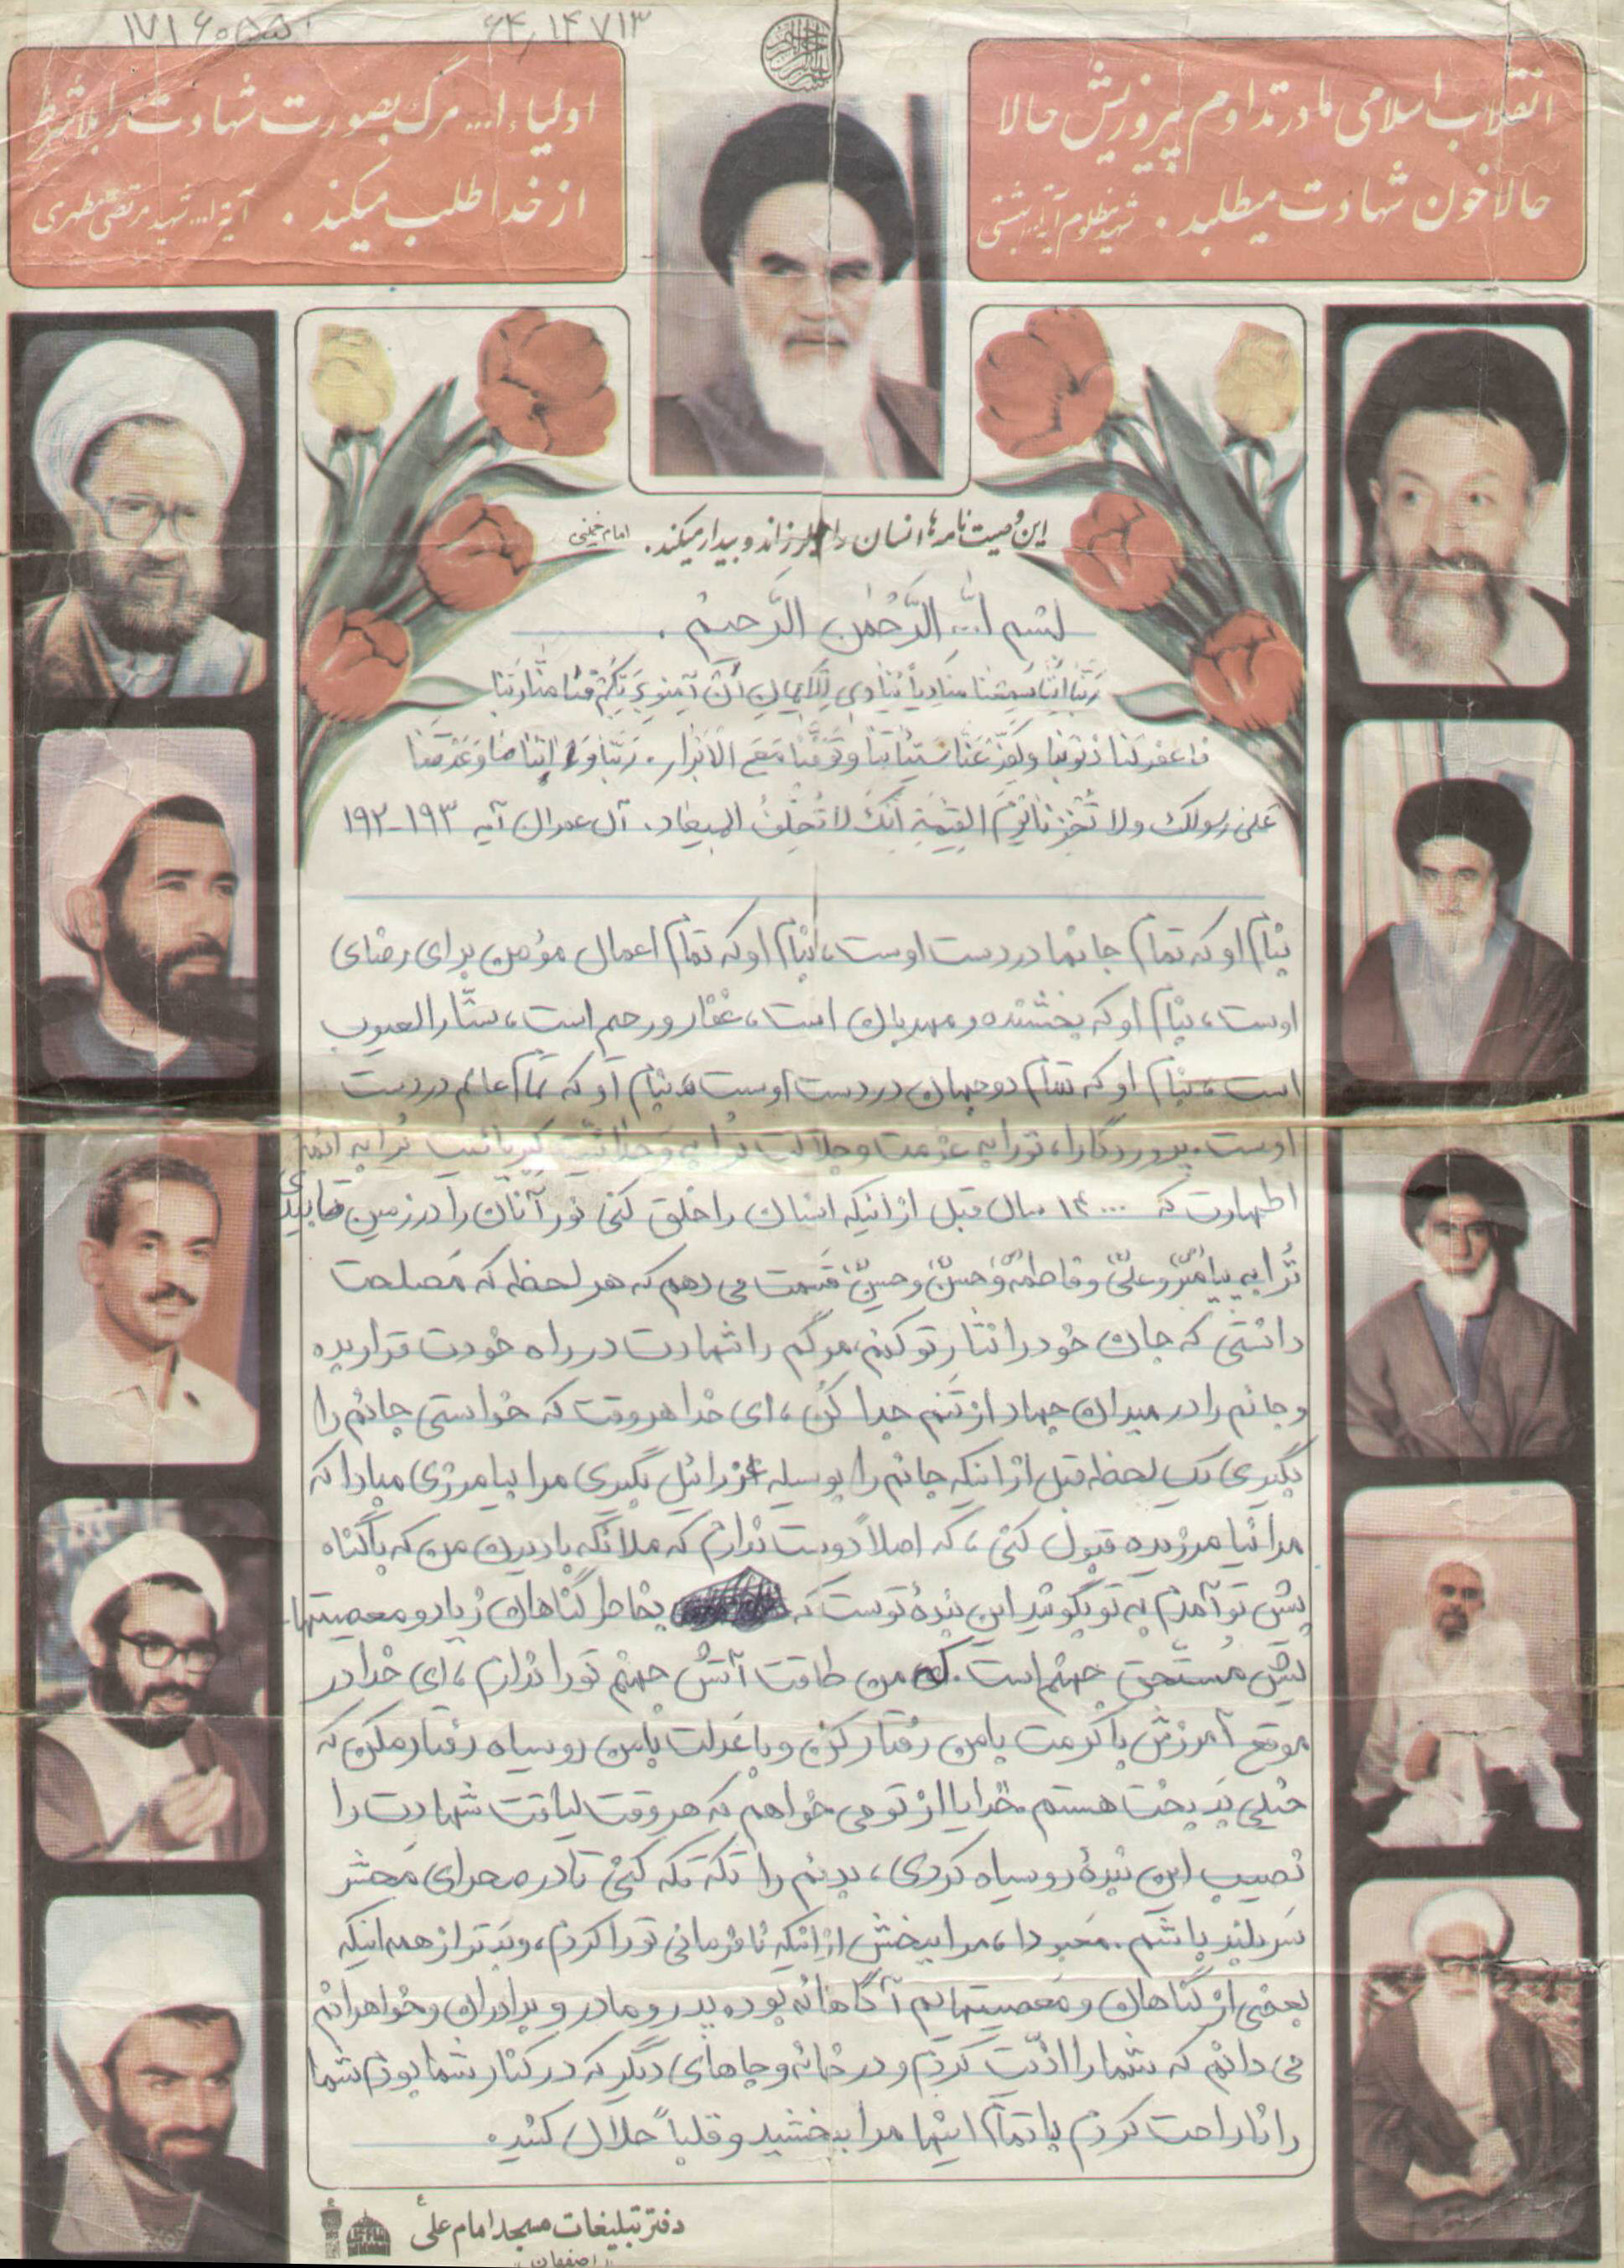 ۱۷۱۶۰۵۵۰
۶۴,۱۴۷۱۳
انقلاب اسلامی ما در تداوم پیروزیش حالا
حالا خون شهادت میطلبد . شهید مظلوم آیة ا... بهشتی
اولیاء ا... مرگ بصورت شهادت را بلاشرط
از خدا طلب میکند . آیة ا... شهید مرتضی مطهری
این وصیت نامه‌ها انسان را میلرزاند و بیدار میکند . امام خمینی
بِسْمِ ا... الرَّحْمٰنِ الرَّحیمْ .
رَبَّنا اِنَّنا سَمِعْنا مُنادِیاً یُنادی لِلْاِیمانِ اَنْ آمِنو بِرَبِّکُمْ فَئامَنّا رَبَّنا
فَاغفِرلَنا ذُنوبَنا وکَفِّرْ عَنّا سَیِّئاتِنا وتَوَفَّنا مَعَ الاَبْرار . رَبَّنا وَ اتِنا مٰا وَعَدْتَنا
عَلیٰ رسولک ولا تُخْزِنا یَوْمَ القِیٰمَةِ اِنَّکَ لاتُخْلِفُ المیعاد . آل عمران آیه ۱۹۳-۱۹۲
بنام او که تمام جانها در دست اوست، بنام او که تمام اعمال مؤمن برای رضای
اوست، بنام او که بخشنده و مهربان است، غفّار و رحیم است، ستّارالعیوب
است، بنام او که تمام دو جهان در دست اوست، بنام او که تمام عالم در دست
اوست. پروردگارا، تو را به عزمت و جلالت ترا به وحدانیت کبریائیت ترا به ائمه
اطهارت که ۱۴۰۰۰ سال قبل از اینکه انسان را خلق کنی نور آنان را در زمین تابیدی
تُرا به پیامبر(ص) و علی(ع) و فاطمه(س) و حسن(ع) و حسین(ع) قَسَمت می دهم که هر لحظه که مَصلحت
دانستی که جان خود را نثار تو کنم، مرگم را شهادت در راه خودت قرار بده
و جانم را در میدان جهاد از تَنم جدا کُن، ای خدا هر وقت که خواستی جانم را
بگیری یک لحظه قبل از اینکه جانم را بوسیله عزرائیل بگیری مرا بیامرزی مبادا که
مرا نیامرزیده قبول کنی، که اصلاً دوست ندارم که ملائکه با دیدن من که با گناه
پیش تو آمدم به تو بگویند این بندهٔ توست که بخاطر گناهان زیاد و معصیتها-
یش مُستَحق جهنم است. که من طاقت آتش جهنم تو را ندارم، ای خدا در
موقع آمرزش با کَرمت با من رفتار کن و با عَدلت با من رو سیاه رفتار مکن که
خیلی بَد بخت هستم. خدایا از تو می خواهم که هر وقت لیاقت شهادت را
نصیب این بندهٔ رو سیاه کردی، بدنم را تکّه تکه کنی تا در صحرای مَحشر
سَربلند باشم. معبودا، مرا ببخش از اینکه نافرمانی تو را کردم، و بَدتر از همه اینکه
بعضی از گناهان و مَعصیتهایم آگاهانه بوده پدر و مادر و برادران و خواهرانم
می دانم که شما را اذیّت کردم و در خانه و جاهای دیگر که در کنار شما بودم شما
را ناراحت کردم با تمام اینها مرا ببخشید و قلباً حلال کنید.
دفتر تبلیغات مسجد امام علی ع
«اصفهان»